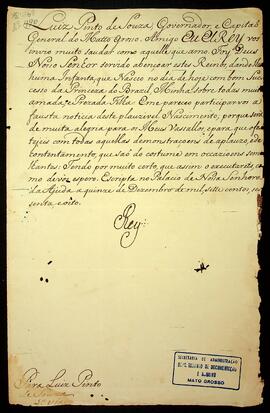 Luiz Pinto de Souza, Governador, e Capitaõ
General do Matto Groso. Amigo EU ELREY vos
envio muito saudar como aquelle que amo. Foy Deus
Nosso Senhor servido abençoar estes Reinos, dando-lhes
huma Infanta, que Nasceo no dia de hoje com bom Suc-
cesso da Princeza do Brazil, Minha, sobre todas muito
amada, e Prezada Filha. E me pareceo participarvos a
fausta noticia deste plauzivel Nascimento, porque será
de muita alegria para os Meus Vassallos, e para que o fes-
tejeis com todas aquellas demonstraçoens de aplauzo, e de
contentamento, que saõ do costume em occazioens seme-
lhantes. Tendo por muito certo, que assim o executareis, co-
mo de vos espero. Escripta no Palacio de Nossa Senhora
da Ajuda a quinze de Dezembro de mil, sette centos, ses-
senta e oito.
Rey
Para Luiz Pinto
de Souza
SECRETARIA DE ADMINISTRAÇÃO
E ARQUIVO
MATO GROSSO